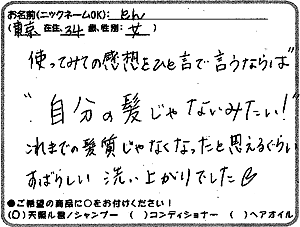 お名前(ニックネームOK): とん
(東京 在住、34 歳、性別: 女 )
使ってみての感想をひと言で言うならば"
"自分の髪じゃないみたい!"
これまでの髪質じゃなくなったと思えるぐらい
すばらしい 洗い上がりでした
●ご希望の商品に○をお付けください!
(○)天陽ル雅ノシャンプー ( )コンディショナー ( )ヘアオイル